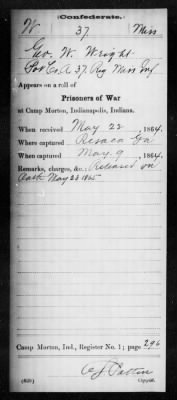 Confederate.
W. 37 Miss
Geo. W. Wright
Co. A 37. Reg Miss Inf
Appears on a roll of
Prisoners of War
at Camp Morton, Indianapolis, Indiana.
When received May 22, 1864.
Where captured Resaca Ga
When captured May 9, 1864.
Remarks, charges, &c.: Released on
Oath May 23 1865
Camp Morton, Ind., Register No. 1; page 296
(639) Copyist.